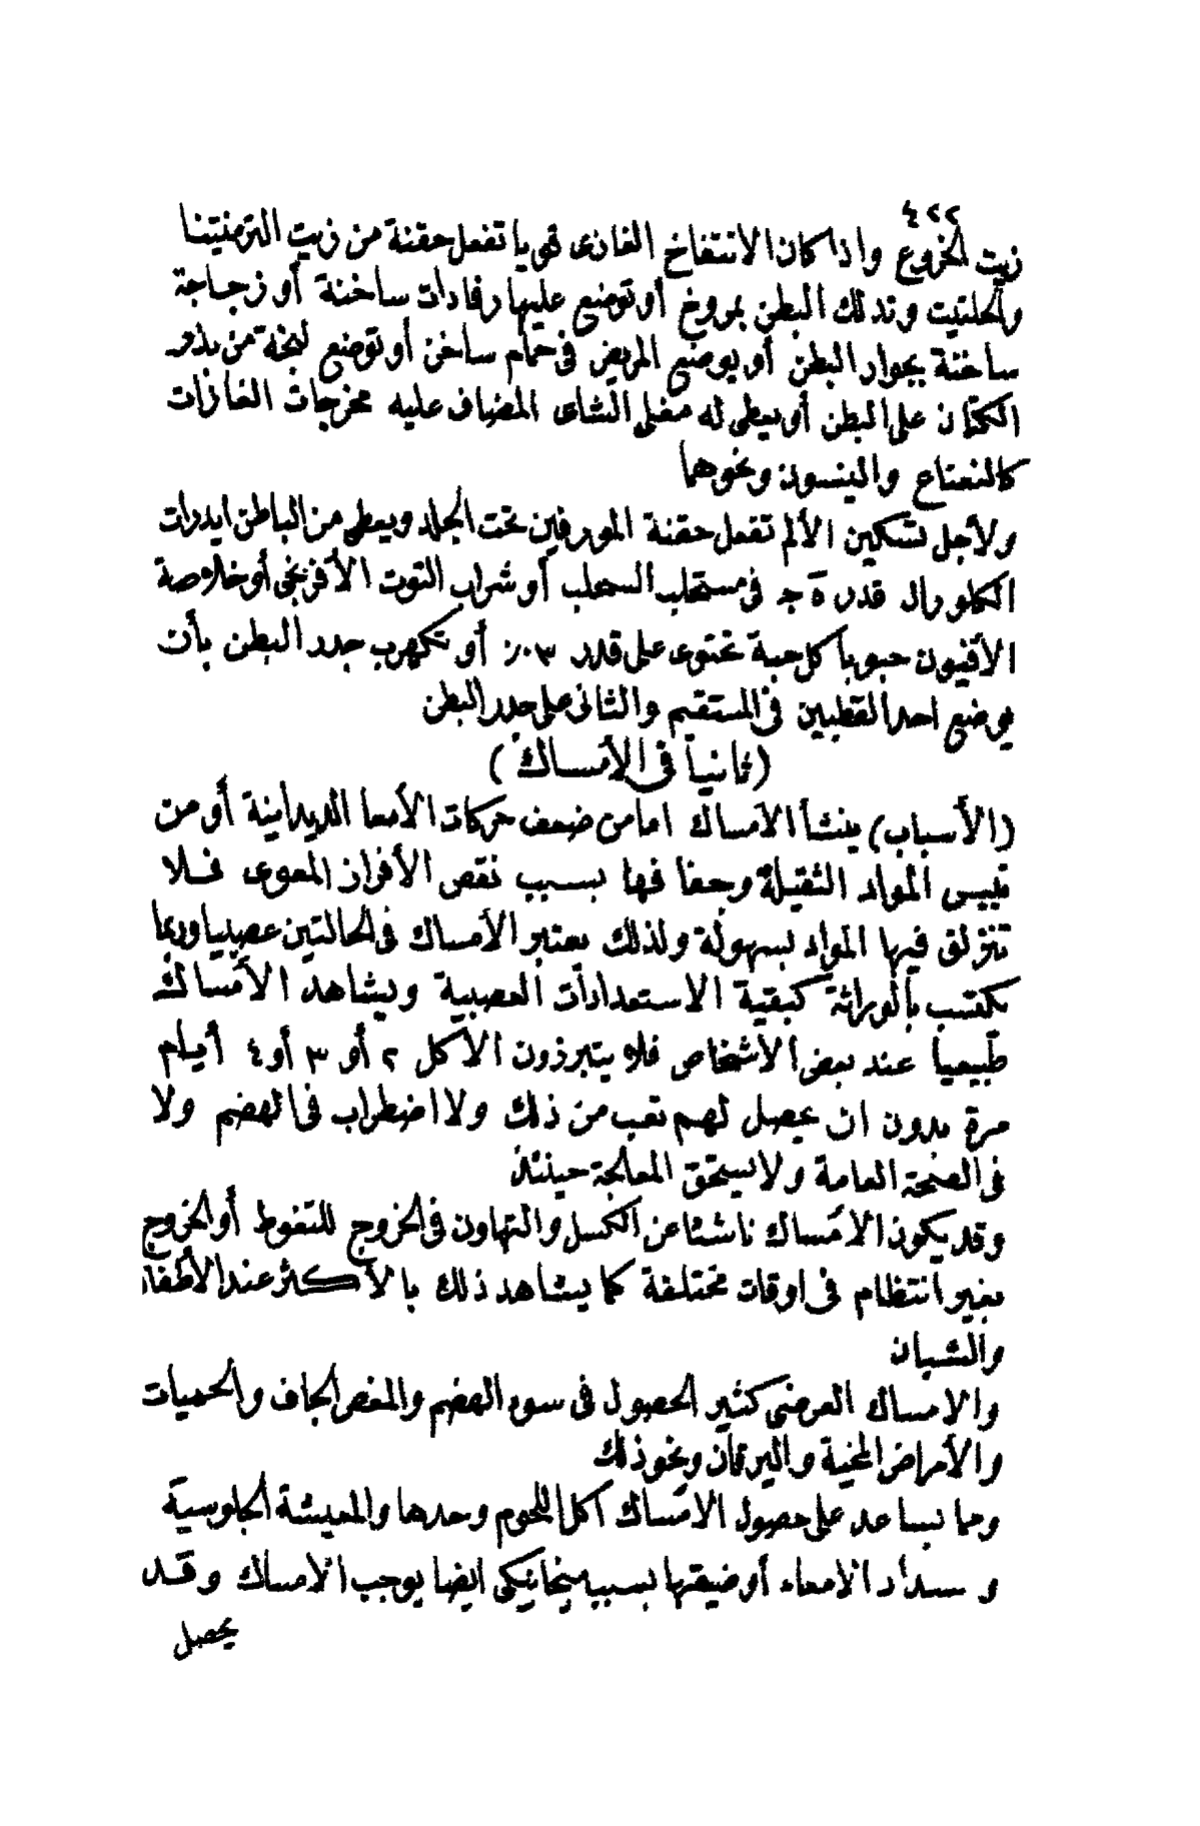 ٤٢٢
زيت الخروع واذا كان الانتفاخ الغازى قويا تفعل حقنة من زيت الترمنتينا
والحلتيت وتدلك البطن بمروخ أو توضع عليها رفادات ساخنة أو زجاجة
ساخنة بجوار البطن أو يوضع المريض فى حمام ساخن أو توضع لبخة من بذر
الكتان على البطن أو يعطى له مغلى الشاى المضاف عليه مخرجات الغازات
كالنعناع والينسون ونحوهما
ولأجل تسكين الألم تفعل حقنة المورفين تحت الجلد ويعطى من الباطن ايدرات
الكلورال قدر ٥ جـ فى مستحلب السحلب أو شراب التوت الأفرنجى أو خلاصة
الأفيون حبوبا كل حبة تحتوى على قدر ٠٣ر. أو تكهرب جدر البطن بأن
يوضع احد القطبين فى المستقيم والثانى على جدر البطن
(ثانيا فى الأمساك)
(الأسباب) ينشأ الامساك اما من ضعف حركات الأمعا الديدانية أو من
تيبس المواد الثقيلة وجفافها بسبب نقص الأفراز المعوى فلا
تنزلق فيها المواد بسهولة ولذلك يعتبر الأمساك فى الحالتين عصبيا وربما
يكتسب بالوراثة كبقية الاستعدادات العصبية ويشاهد الأمساك
طبيعيا عند بعض الأشخاص فلا يتبرزون الا كل ٢ أو ٣ أو ٤ أيام
مرة بدون ان يحصل لهم تعب من ذلك ولا اضطراب فى الهضم ولا
فى الصحة العامة ولا يستحق المعالجة حينئذ
وقد يكون الأمساك ناشئا عن الكسل والتهاون فى الخروج للتغوط أو الخروج
بغير انتظام فى اوقات مختلفة كما يشاهد ذلك بالأكثر عند الأطفال
والشبان
والامساك العرضى كثير الحصول فى سوء الهضم والمغص الجاف والحميات
والأمراض المخية واليرقان ونحو ذلك
ومما يساعد على حصول الامساك أكل اللحوم وحدها والمعيشة الجلوسية
وسداد الامعاء أو ضيقها بسبب ميخانيكى ايضا يوجب الامساك وقد
يحصل